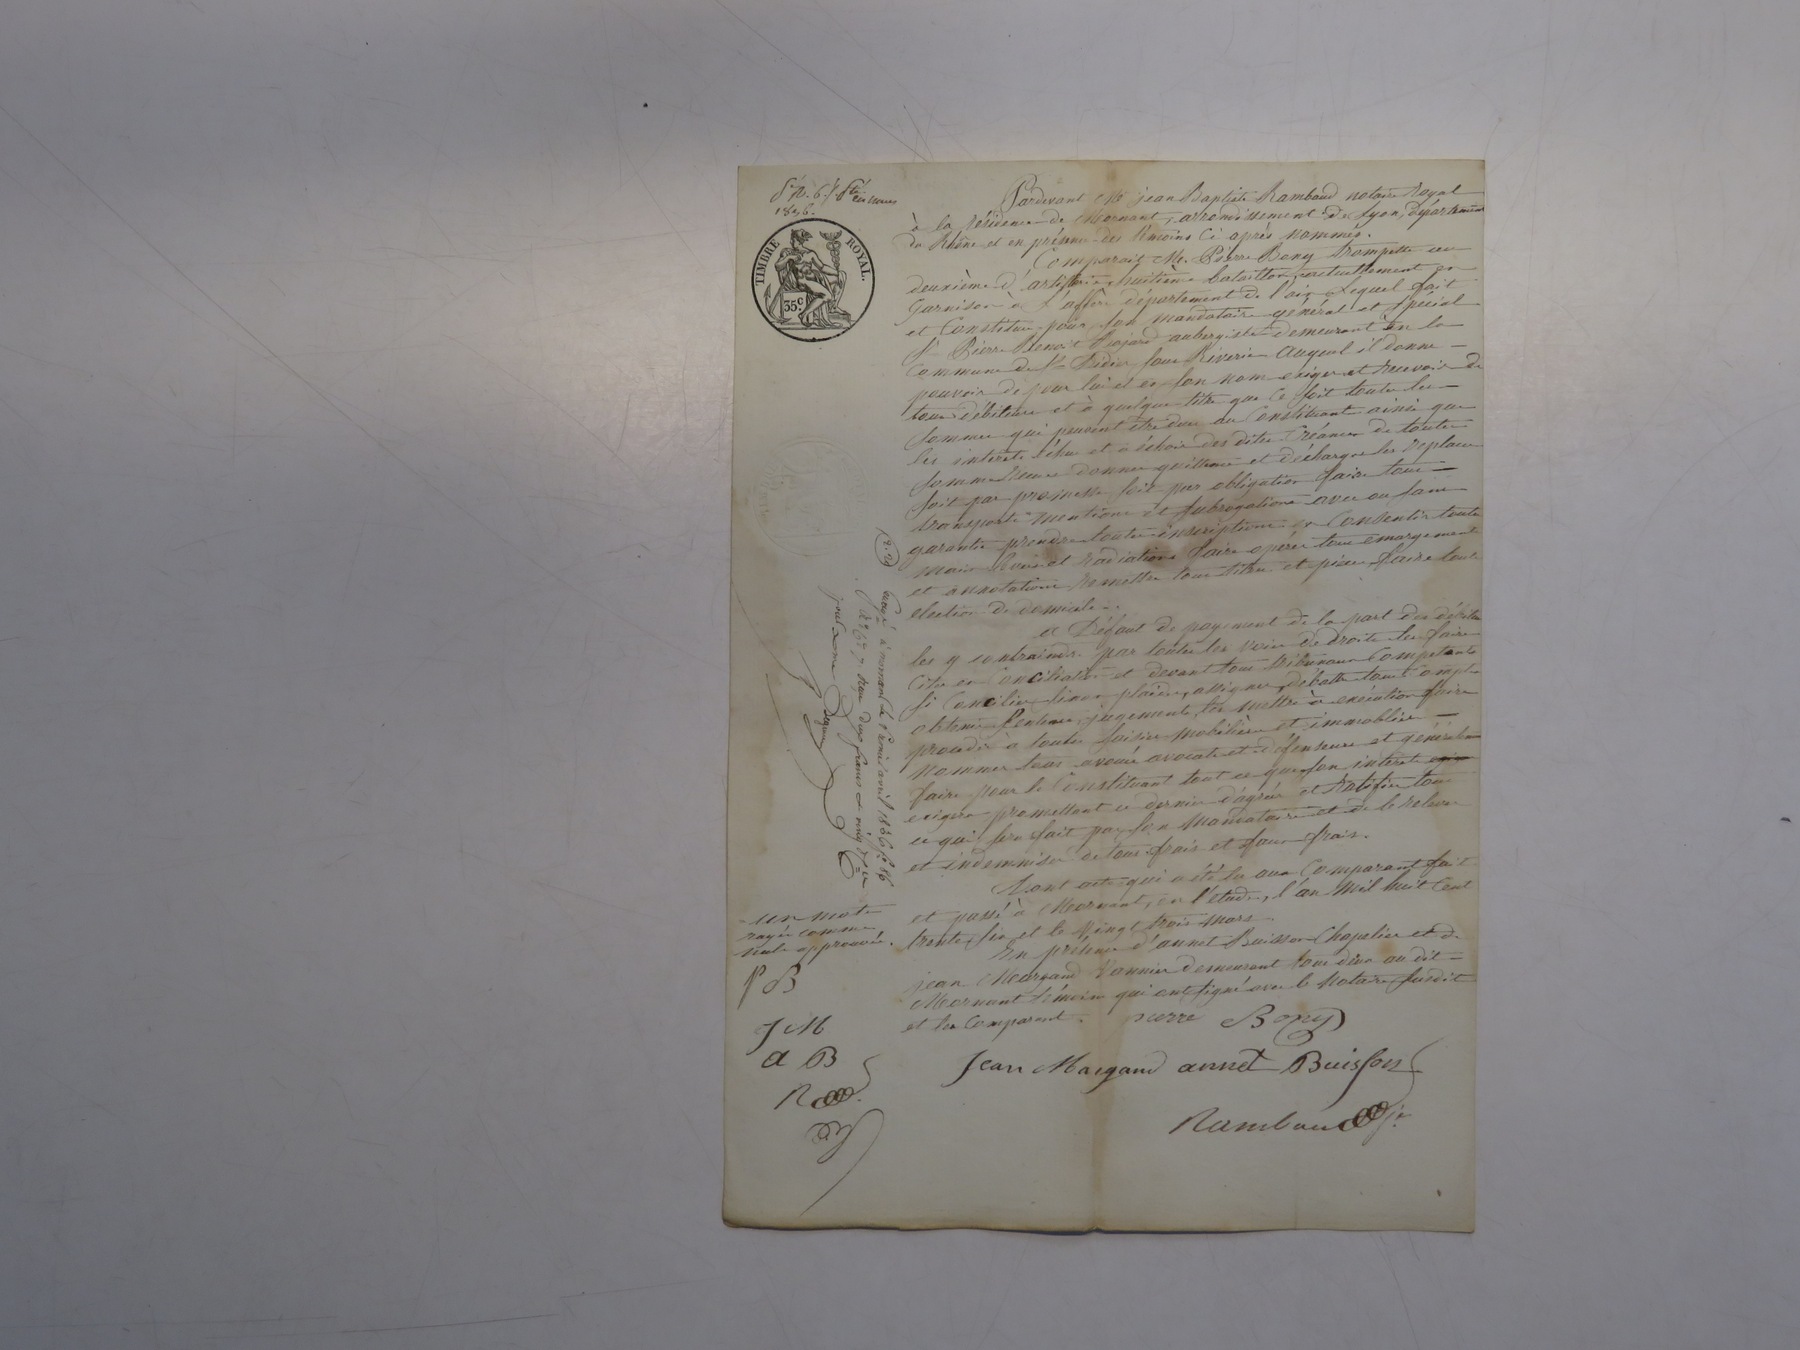 1836.
TIMBRE ROYAL.
35c
Pardevant Me jean Baptiste Rambaud notaire Royal
à la résidence de Mornant, arrondissement de Lyon, département
du Rhône et en présence des témoins ci après nommés.
Comparait Mr. Pierre Bony trompette au
deuxième d'artillerie huitième bataillon, actuellement en
Garnison à département de l'ain Lequel fait
et Constitue pour son mandataire général et spécial
Sr Pierre Benoit aubergiste demeurant en la
Commune de St Didier sous Riverie Auquel il donne
pouvoir de pour lui et en son nom exiger et recevoir de
tous débiteurs et à quelque titre que ce soit toutes les
sommes qui peuvent être dues au Constituant ainsi que
les interets échus et à échoir des dites Créances de toutes
sommes reçues donner quittances et décharges les replacer
soit par promesse soit par obligation faire tous
transports mentions et subrogations avec ou sans
garantie prendre toutes inscriptions en Consentir toutes
main levées et radiations faire opérer tous émargements
et annotations remettre tous titres et pièces faire toute
élection de domicile.
a Défaut de payement de la part des débiteurs
les y contraindre par toutes les voies de droits les faire
Citer en Conciliation et devant tous tribunaux Compétants
se Concilier sinon plaider, assigner, débattre tous Comptes
obtenir sentences, jugements, les mettre à exécution faire
procéder à toutes saisies mobilières et immobilières
Nommer tous avoués avocats et défenseurs et généralement
faire pour le Constituant tout ce que son interet
exigera promettant ce dernier d'agréer et ratifier tout
ce qui sera fait par son Mandataire et de le relever
et indemniser de tous frais et faux frais.
Dont acte qui a été lu aux Comparant fait
et passé à Mornant, en l'étude, l'an Mil huit Cent
trente six et le Vingt trois Mars.
En présence d'annet Buisson Chapelier et de
jean Margand Vannier demeurant tous deux au dit
Mornant témoins qui ont signé avec le Notaire susdit
et les Comparant. pierre Bony
Jean Margand annet Buisson
Rambaud
Enregé à mornant le avril 1836 fo 86
reçu deux francs
un mot
rayé comme
nul approuvé.
P B
J M
a B
R